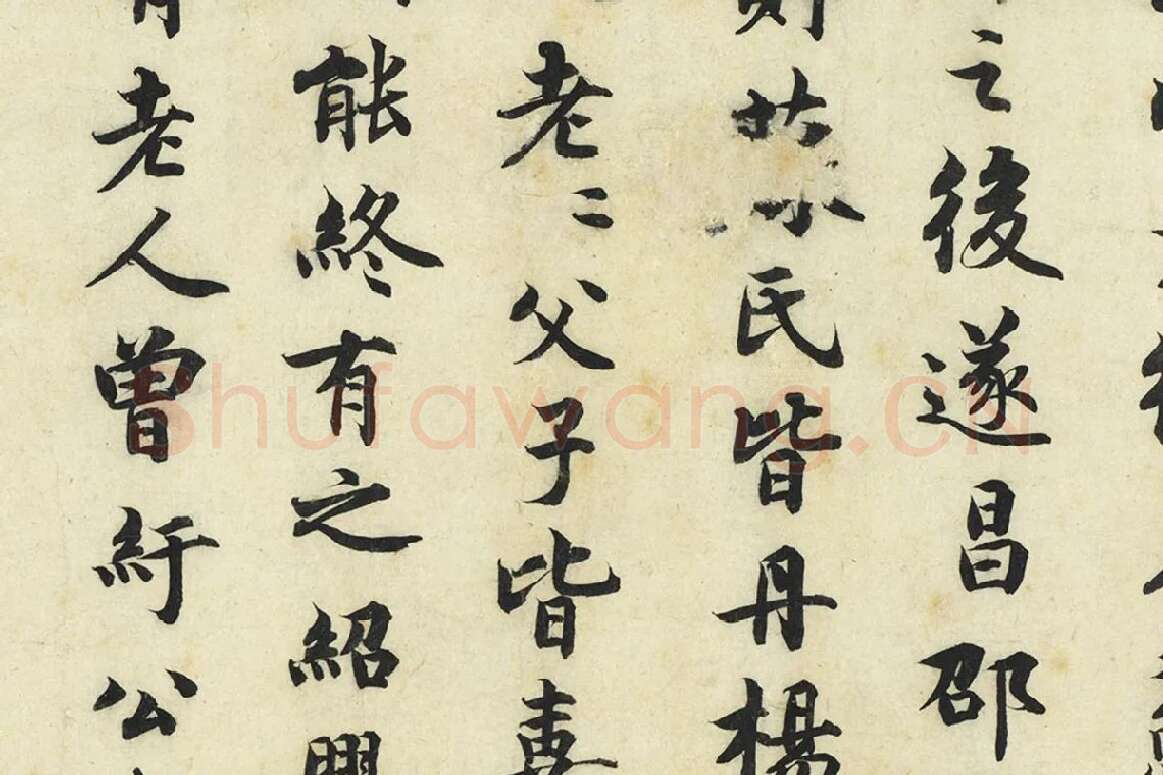 之後遂昌邵
則蔡氏皆丹楊
老〻父子皆喜
能終有之紹興
老人曾紆公
Shufawang.CN